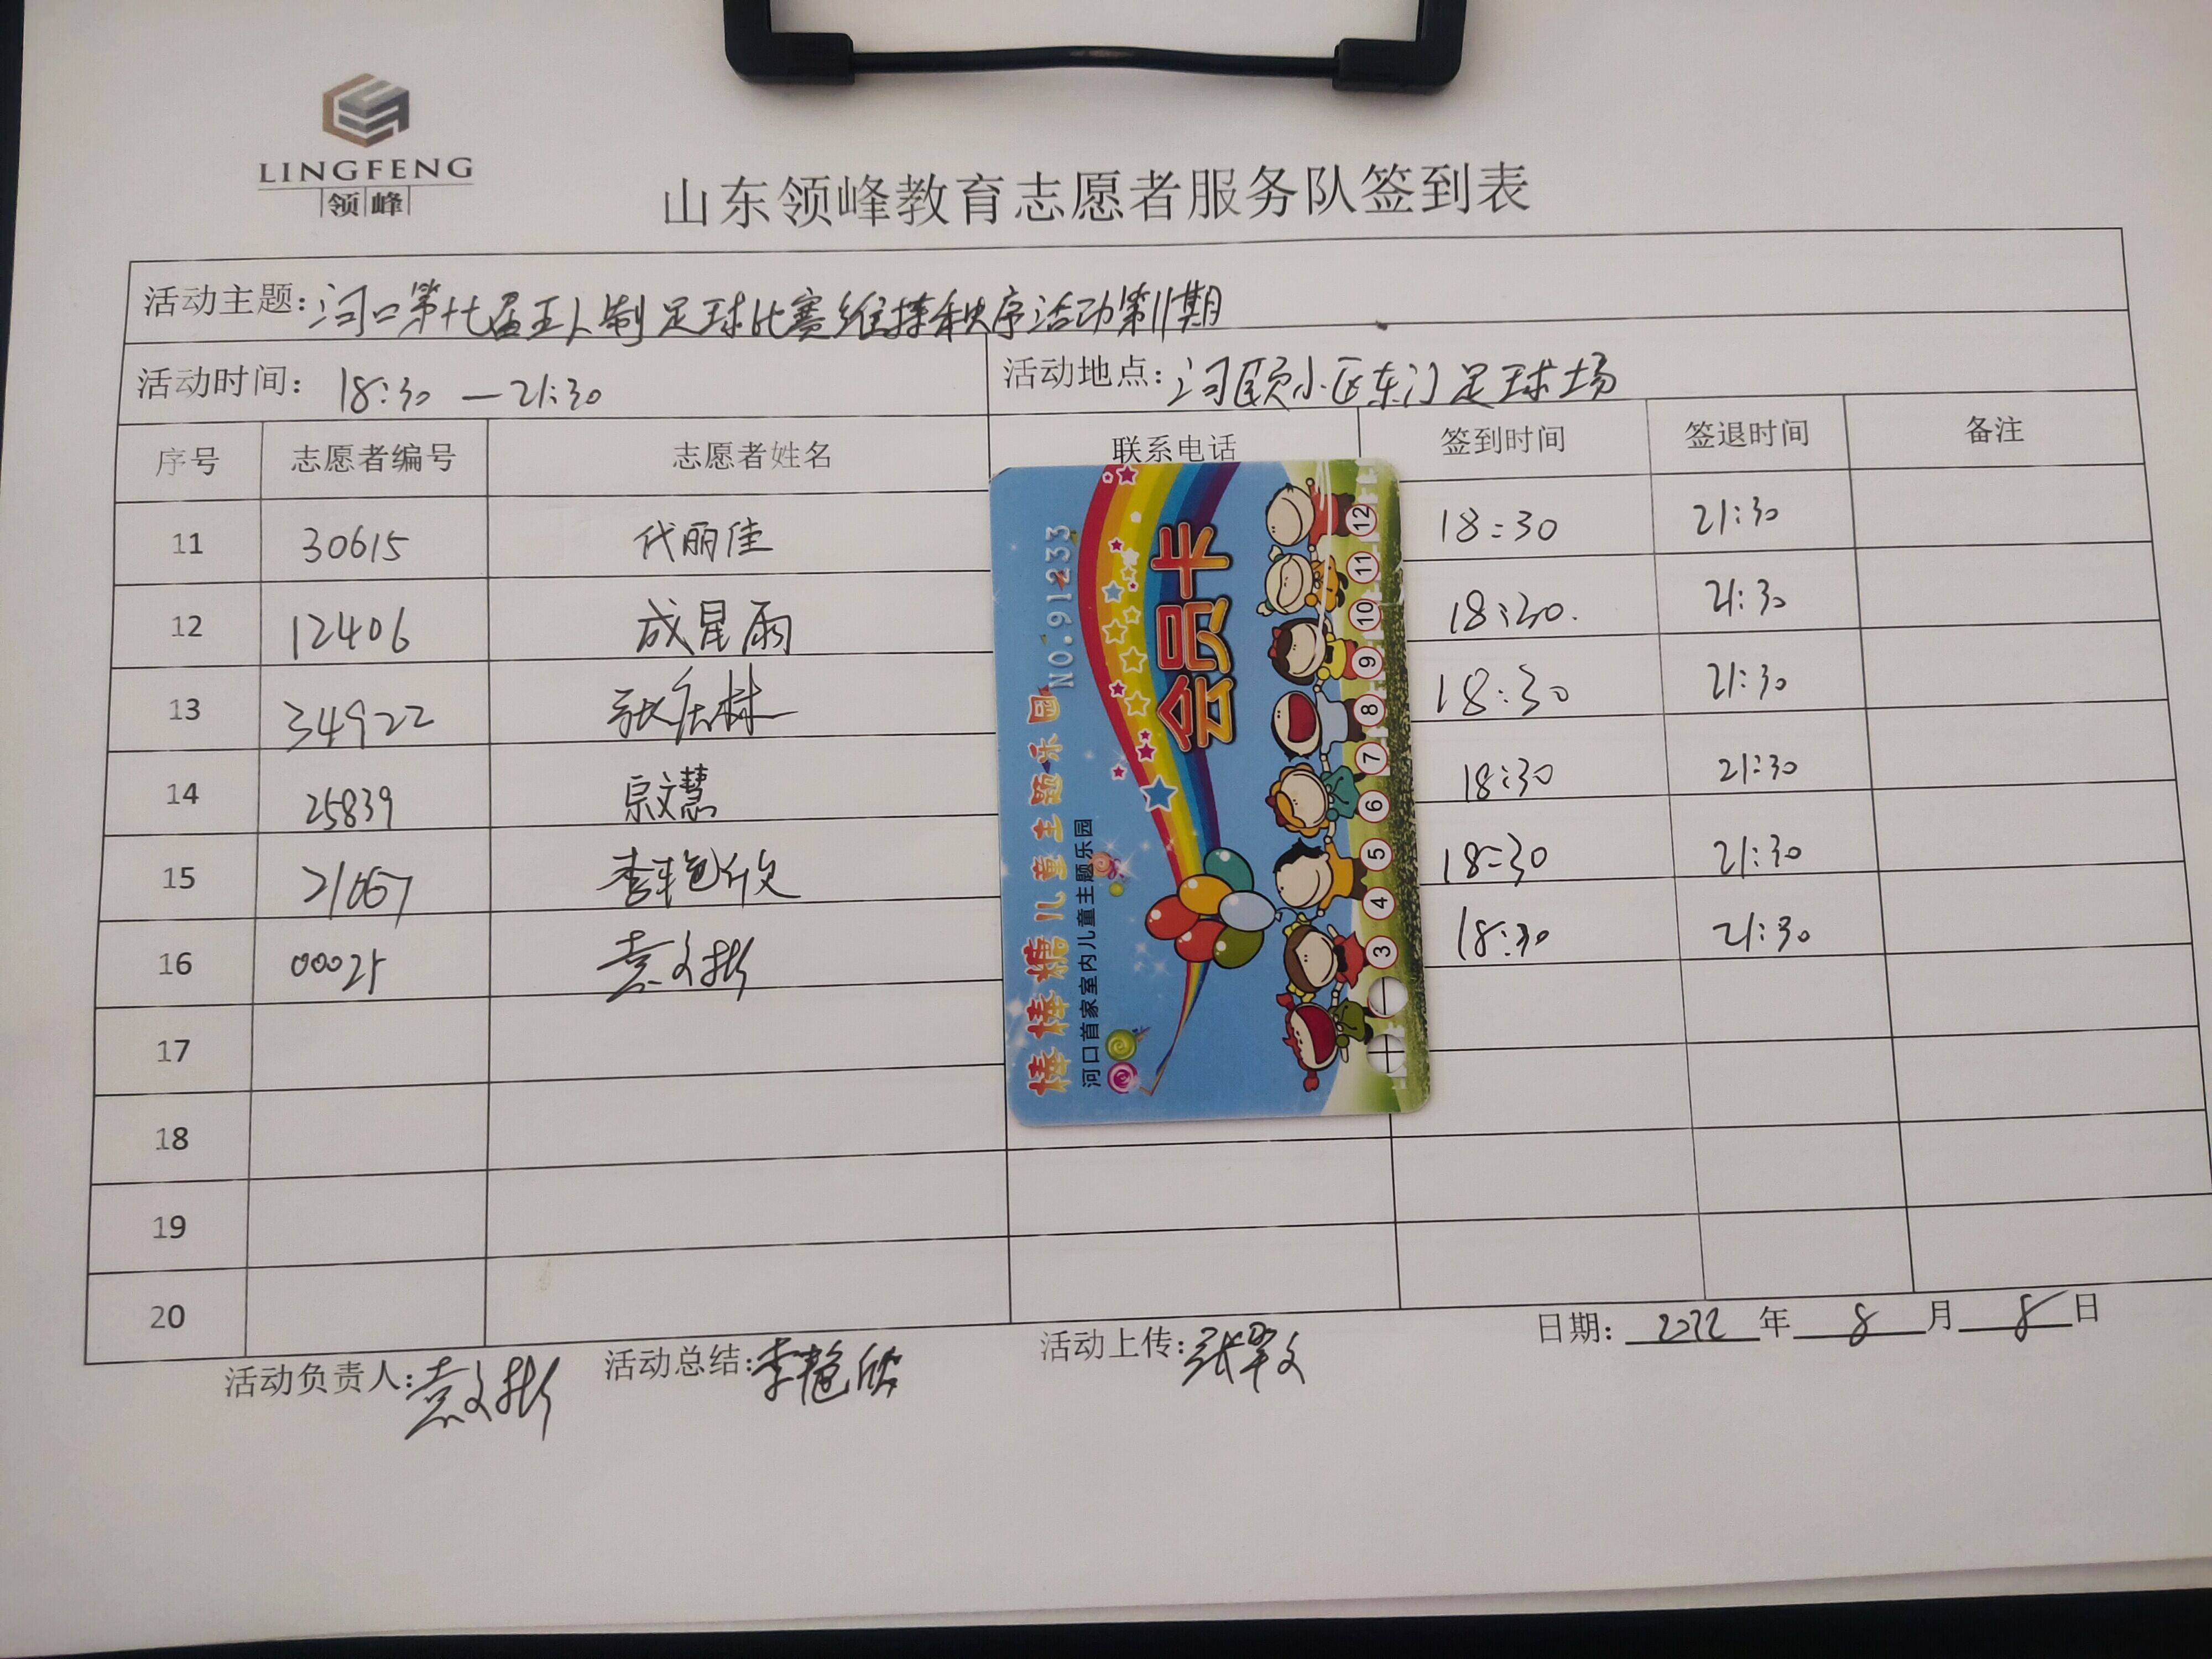 LINGFENG
领峰
山东领峰教育志愿者服务队签到表
活动主题：河口第十七届五人制足球比赛维持秩序活动第11期
活动时间： 18:30 — 21:30 活动地点：河颐小区东门足球场
序号 志愿者编号 志愿者姓名 联系电话 签到时间 签退时间 备注
11 30615 代丽佳 18:30 21:30
12 12406 成星雨 18:30. 21:30
13 34922 18:30 21:30
14 25839 宗文慧 18:30 21:30
15 21067 李艳欣 18:30 21:30
16 00025 袁文彬 18:30 21:30
17
18
19
20
活动负责人：袁文彬 活动总结：李艳欣 活动上传： 日期： 2022 年 8 月 8 日
棒棒糖儿童主题乐园 NO.91233
河口首家室内儿童主题乐园
会员卡
3 4 5 6 7 8 9 10 11 12